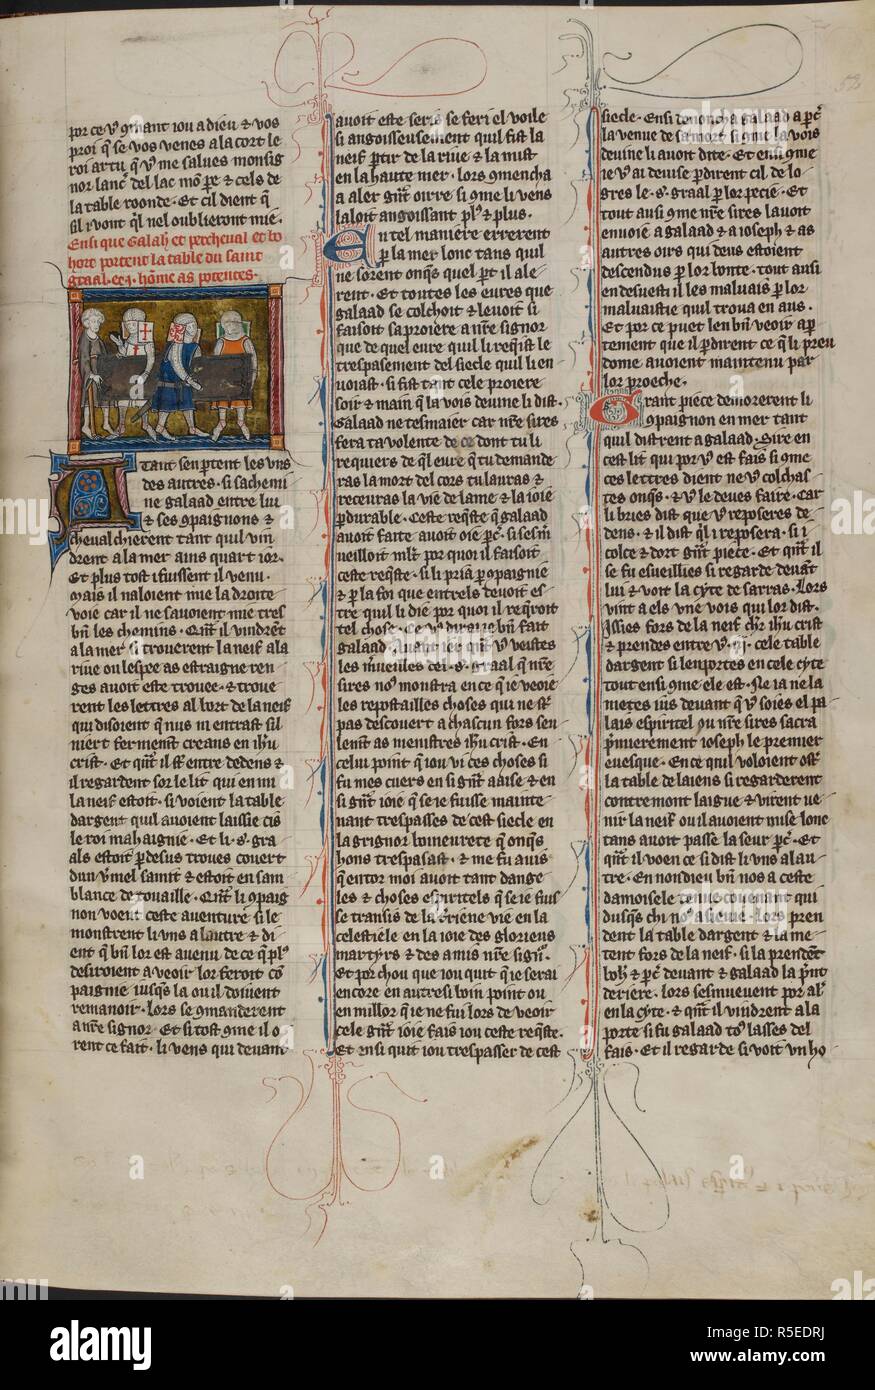 por ce vꝰ ꝯmant iou a dieu & vos
proi q̄ se vos venes a la cort le
roi artu q̄ vꝰ me salues monsig
nor lanc̄ del lac mō p̄e & cels de
la table roonde. Et cil dient q̄
sil i vont q̄l nel oublieront mie.
Ensi que Galah et percheual et bo
hort portent la table du saint
graal. et .j. hōme as potences.
Atant sen ptent les vns
des autres. si sachemi
ne galaad entre lui
& ses ꝯpaignons &
cheualchierent tant quil vin
drent a la mer ains quart ior.
Et plus tost i fuissent il venu.
mais il naloient mie la droite
voie car il ne sauoient mie tres
bn̄ les chemins. Qn̄t il vindrēt
a la mer si trouerent la neif a la
riue ou lespee as estraigne ren
ges auoit este trouee. & troue
rent les lettres al bort de la neif
qui disoient q̄ nus ni entrast sil
niert fermēt creans en ihū
crist. Et qn̄t il sūt entre dedens &
il regardent sor le lit qui en mi
la neif estoit. si voient la table
dargent quil auoient laissie cīs
le roi mahaignie. Et li .sꝰ. gra
als estoit p̄ desus troues couert
dun vmel samit & estoit en sam
blance de touaille. Qn̄t li ꝯpaig
non voient ceste auenture si le
monstrent li vns a lautre & di
ent q̄ bn̄ lor est auenu de ce q̄ plꝰ
desiroient a veoir lor feront cō
paignie iusqs la ou il doiuent
remanoir. lors se ꝯmanderent
a nr̄e signor. Et si tost ꝯme il o
rent ce fait. li vens qui deuant
auoit este seris se feri el voile
si angoisseusement quil fist la
neif ptir de la riue & la mist
en la haute mer. lors ꝯmencha
a aler gn̄t oirre si ꝯme li vens
laloit angoissant plꝰ & plus.
En tel maniere errerent
p̄ la mer lonc tans quil
ne sorent onqs quel pt il ale
rent. Et toutes les eures que
galaad se colchoit & leuoit si
faisoit sa proiere a nr̄e signor
que de quel eure quil li reqist le
trespasement del siecle quil li en
uoiast. si fist tant cele proiere
soir & main q̄ la vois deuine li dist.
Galaad ne tesmaier car nr̄e sires
fera ta volente de ce dont tu li
requiers de ql eure q̄ tu demande
ras la mort del cors tu lauras &
receuras la vie de lame & la ioie
pdurable. Ceste reqste q̄ galaad
auoit faite auoit oie pc̄.
neilloit mlt̄ por quoi il faisoit
ceste reqste. si li pria p ꝯpaignie
& p la foi que entrels deuoit es
tre quil li die por quoi il reqroit
tel chose. Ce vꝰ dirai ie bn̄ fait
galaad auant ier qn̄t vꝰ veistes
les mueilles del .sꝰ. graal q̄ nr̄e
sires noꝰ monstra en ce q̄ ie veoie
les repostailles choses qui ne sūt
pas descouert a chascun fors seu
lent̄ as menistres ihū crist. En
celui point q̄ iou vi ces choses si
fu mes cuers en si gn̄t aaise & en
si gn̄t ioie q̄ se ie fuisse mainte
nant trespasses de cest siecle en
la grignor boineurete q̄ onqs
hons trespasast. & me fu auis
q̄ entor moi auoit tant dange
les & choses espiritels q̄ se ie fuis
se transis de la triene vie en la
celestiele en la ioie des glorieus
martyrs & des amis nr̄e sign̄.
Et por chou que iou quit q̄ ie serai
encore en autresi boin point ou
en millor q̄ ie ne fui lors de veoir
cele gn̄t ioie fais iou ceste reqste.
Et ensi quit iou trespasser de cest
siecle. Ensi denoncha galaad a pc̄
la venue de sa mort si ꝯme la vois
deuine li auoit dite. Et ensi ꝯme
ie vꝰ ai deuise pdirent cil de lo
gres le .sꝰ. graal p lor pechie. Et
tout ausi ꝯme nr̄e sires lauoit
enuoie a galaad & a ioseph & as
autres oirs qui deus estoient
descendus p lor bonte. tout ausi
en desuesti il les maluais p lor
maluaistie quil troua en aus.
Et por ce puet len bn̄ veoir ap
tement que il pdirent ce q̄ li preu
dome auoient maintenu par
lor proeche.
Grant piece demorerent li
ꝯpaignon en mer tant
quil distrent a galaad. Sire en
cest lit qui por vꝰ est fais si ꝯme
ces lettres dient ne vꝰ colchas
tes onqs. & vꝰ le deues faire. Car
li bries dist que vꝰ reposeres de
dens. & il dist ql i reposera. si i
colce & dort gn̄t piece. Et qn̄t il
se fu esueillies si regarde deuāt
lui & voit la cyte de sarras. Lors
vint a els vne vois qui lor dist.
Issies fors de la neif chr̄ ihū crist
& prendes entre vꝰ .iij. cele table
dargent si lenportes en cele cyte
tout ensi ꝯme ele est. Ne ia ne la
metes ius deuant q̄ vꝰ soies el pa
lais espiritel ou nr̄e sires sacra
pmierement ioseph le premier
euesque. En ce quil voloient ost̄
la table de laiens si regarderent
contremont laigue & virent ve
nir la neif ou il auoient mise lonc
tans auoit passe la seur pc̄. Et
qn̄t il voen ce si dist li vns a lau
tre. En non dieu bn̄ nos a ceste
damoisele tenue couenant qui
dusqs chi noꝰ a sieuie. Lors pren
dent la table dargent & la me
tent fors de la neif. si la prendēt
boh̄. & pc̄ deuant & galaad la pn̄t
deriere. lors sesmueuent por al̄
en la cyte. & qn̄t il vindrent a la
porte si fu galaad toꝰ lasses del
fais. Et il regarde si voit vn ho
alamy
Image ID: R5EDRJ
www.alamy.com